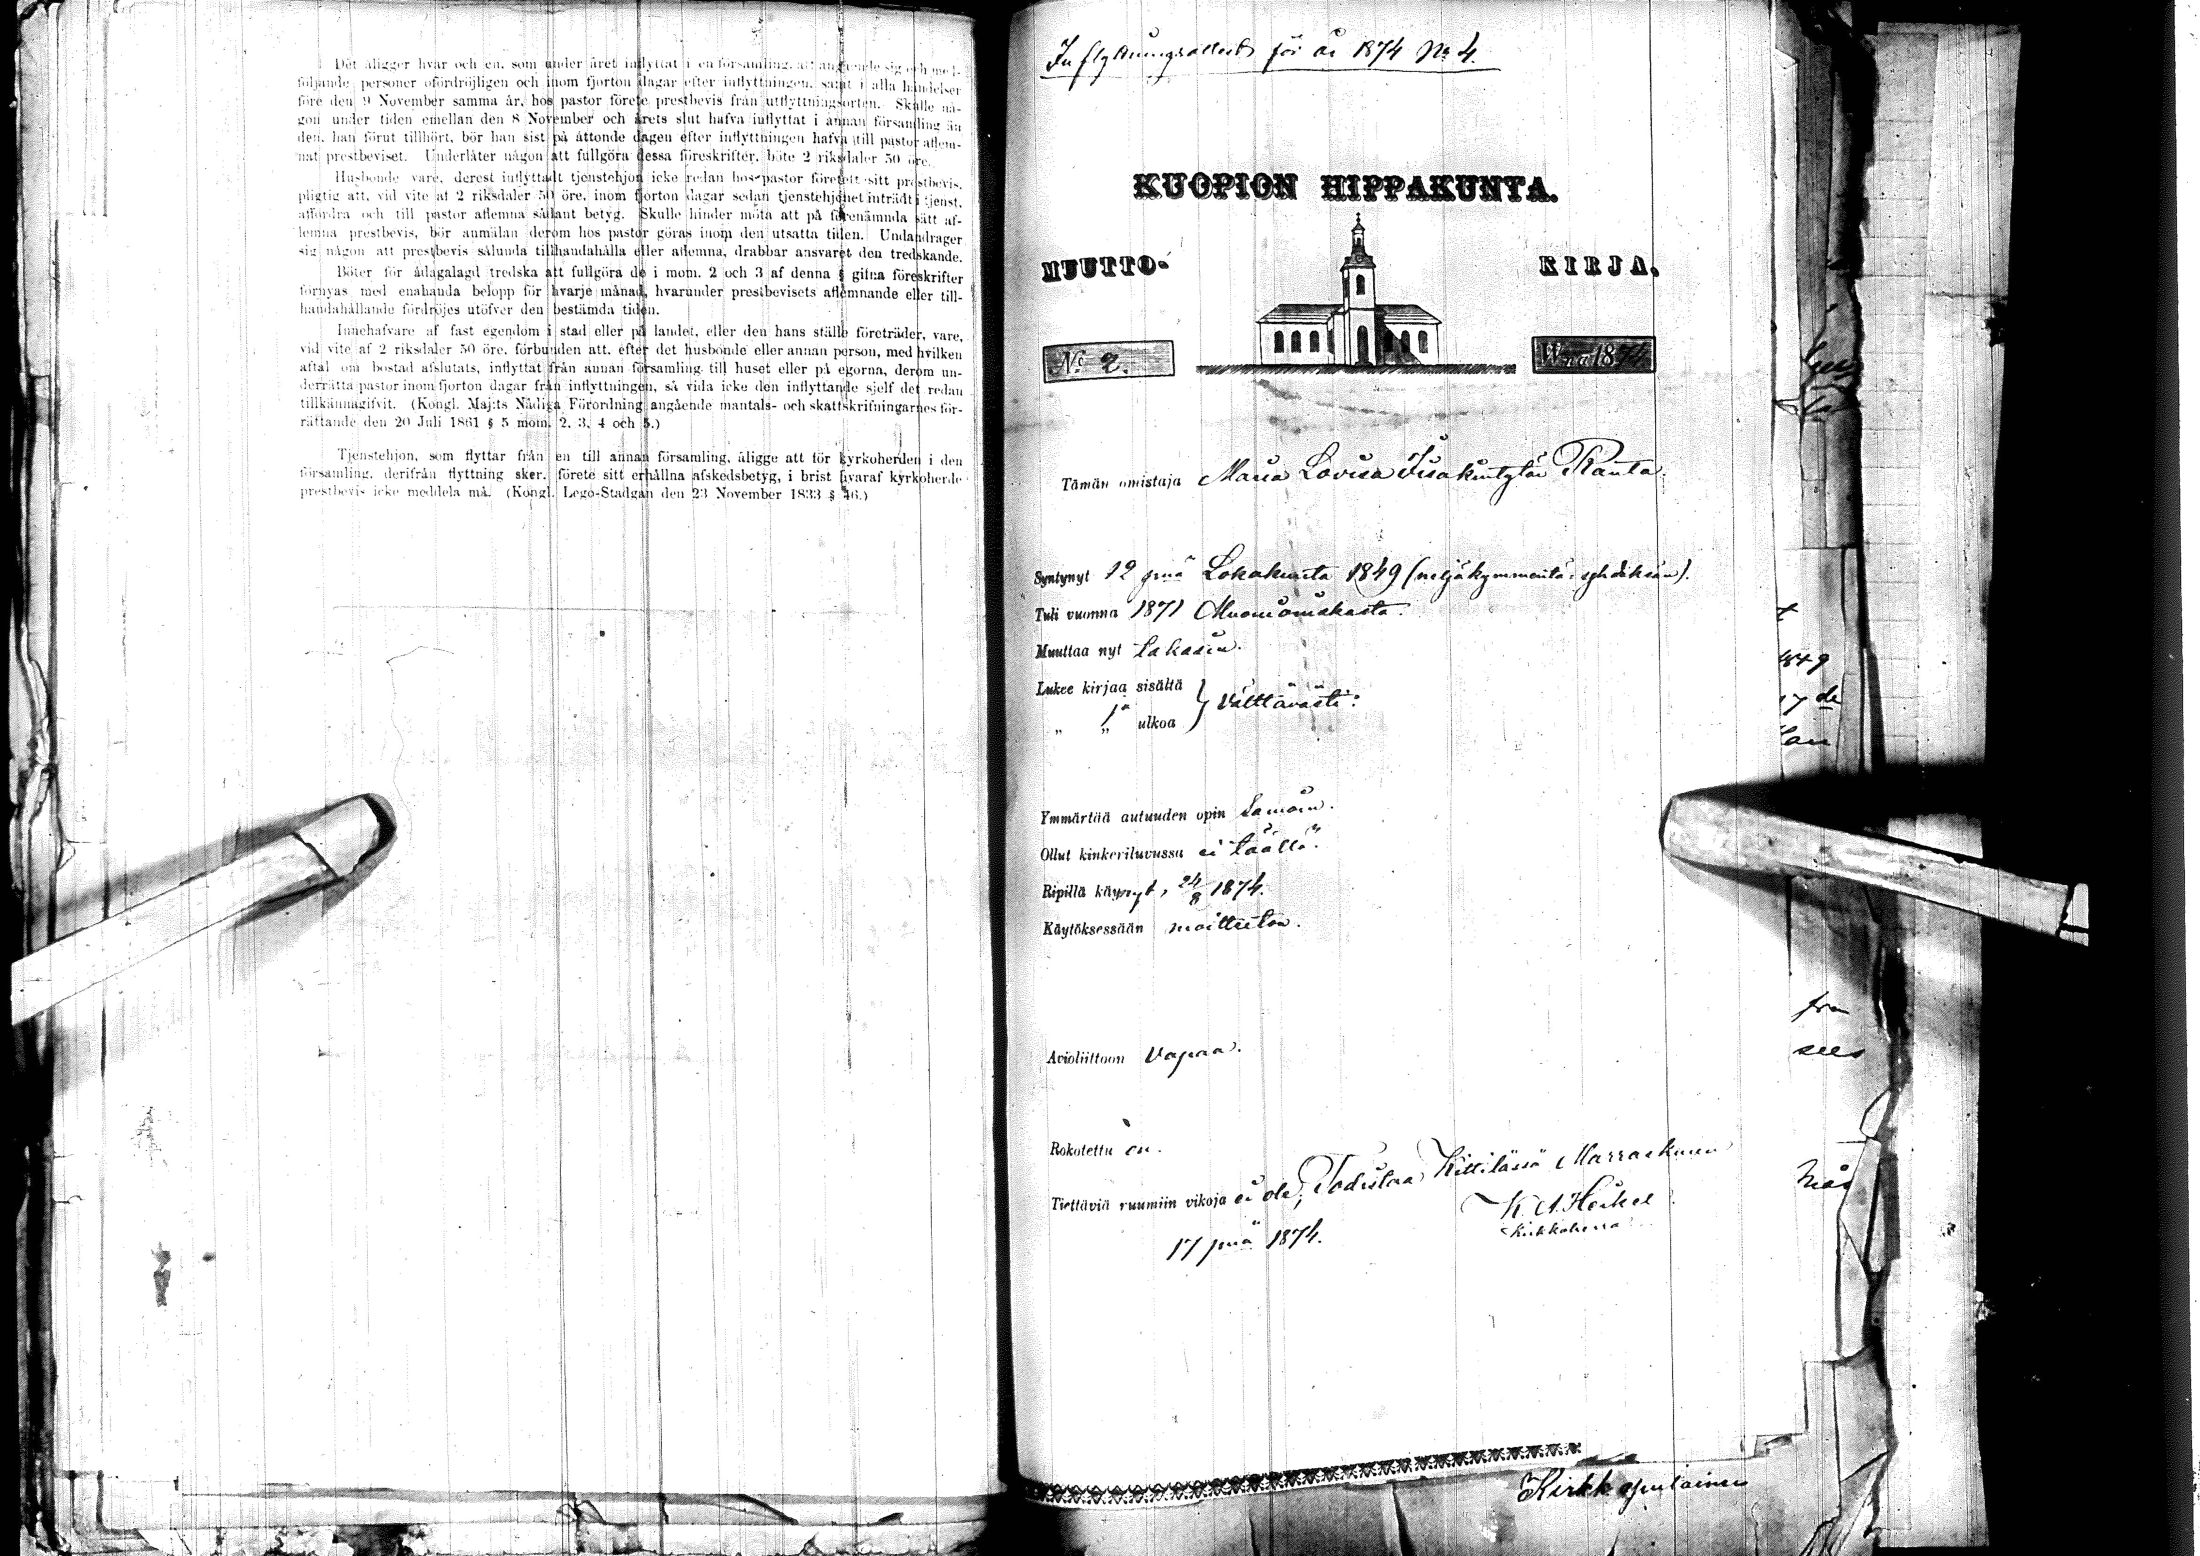 Det åligger hvar och en, som under året inflyttat i en församling, att angifva sig och med-
följande personer ofördröjligen och inom fjorton dagar efter inflyttningen, samt i alla händelser
före den 9 November samma år, hos pastor förete prestbevis från utflyttningsorten. Skulle nå-
gon under tiden emellan den 8 November och årets slut hafva inflyttat i annan församling än
den, han förut tillhört, bör han sist på åttonde dagen efter inflyttningen hafva till pastor aflem-
nat prestbeviset. Underlåter någon att fullgöra dessa föreskrifter, böte 2 riksdaler 50 öre.
Husbonde vare, derest inflyttadt tjenstehjon icke redan hos pastor företett sitt prestbevis,
pligtig att, vid vite af 2 riksdaler 50 öre, inom fjorton dagar sedan tjenstehjonet inträdt i tjenst,
affordra och till pastor aflemna sådant betyg. Skulle hinder möta att på förenämnda sätt af-
lemna prestbevis, bör anmälan derom hos pastor göras inom den utsatta tiden. Undandrager
sig någon att prestbevis sålunda tillhandahålla eller aflemna, drabbar ansvaret den tredskande.
Böter för ådagalagd tredska att fullgöra de i mom. 2 och 3 af denna § gifna föreskrifter
förnyas med enahanda belopp för hvarje månad, hvarunder prestbevisets aflemnande eller till-
handahållande fördröjes utöfver den bestämda tiden.
Innehafvare af fast egendom i stad eller på landet, eller den hans ställe företräder, vare,
vid vite af 2 riksdaler 50 öre, förbunden att, efter det husbonde eller annan person, med hvilken
aftal om bostad afslutats, inflyttat från annan församling till huset eller på egorna, derom un-
derrätta pastor inom fjorton dagar från inflyttningen, så vida icke den inflyttande sjelf det redan
tillkännagifvit. (Kongl. Maj:ts Nådiga Förordning angående mantals- och skattskrifningarnes för-
rättande den 20 Juli 1861 § 5 mom. 2, 3, 4 och 5.)
Tjenstehjon, som flyttar från en till annan församling, åligge att för kyrkoherden i den
församling, derifrån flyttning sker, förete sitt erhållna afskedsbetyg, i brist hvaraf kyrkoherde
prestbevis icke meddela må. (Kongl. Lego-Stadgan den 23 November 1833 § 46.)
Inflyttningsattest för år 1874 No 4.
KUOPION HIPPAKUNTA.
MUUTTO- KIRJA.
No. 2. Wna 1874
Tämän omistaja Maria Lovisa Iisakintytär Ranta.
Syntynyt 12 pnä Lokakuuta 1849 (neljäkymmentä yhdeksän).
Tuli vuonna 1871 Muonioniskasta.
Muuttaa nyt takasin.
Lukee kirjaa sisältä } Välttävästi.
„ „ ja ulkoa
Ymmärtää autuuden opin Samoin.
Ollut kinkeriluvussa ei täällä.
Ripillä käynyt, 24/8 1874.
Käytöksessään moitteeton.
Avioliittoon Vapaa.
Rokotettu on.
Tiettäviä ruumiin vikoja ei ole, Todistaa Kittilässä Marraskuun
17 pnä 1874.
K. A. Heikel
Kirkkoherra
1849
17 de
Kirkk apulainen